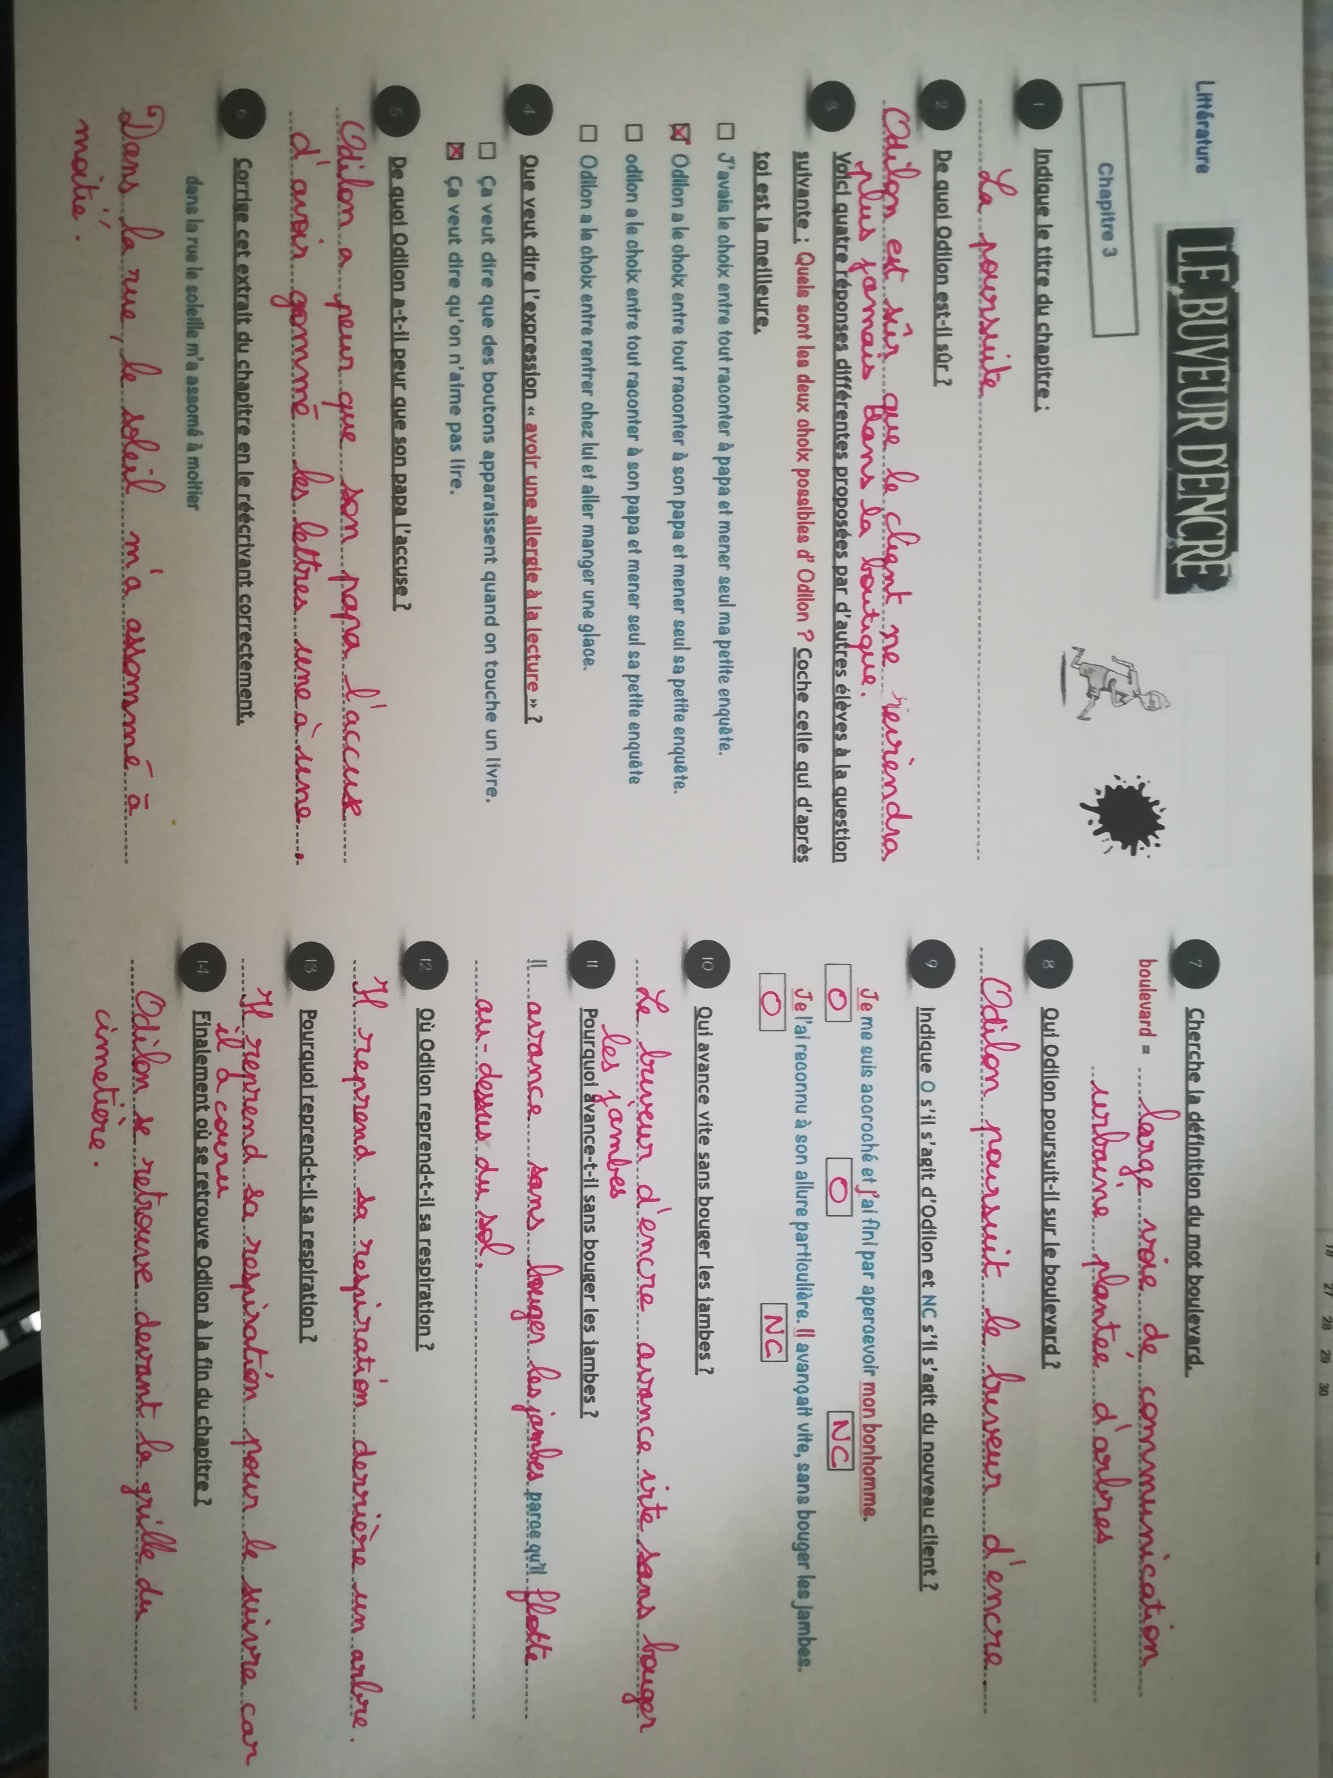 Littérature
LE BUVEUR D'ENCRE
Chapitre 3
1 Indique le titre du chapitre :
La poursuite
2 De quoi Odilon est-il sûr ?
Odilon est sûr que le client ne reviendra
plus jamais dans la boutique.
3 Voici quatre réponses différentes proposées par d'autres élèves à la question
suivante : Quels sont les deux choix possibles d'Odilon ? Coche celle qui d'après
toi est la meilleure.
J'avais le choix entre tout raconter à papa et mener seul ma petite enquête.
Odilon a le choix entre tout raconter à son papa et mener seul sa petite enquête.
odilon a le choix entre tout raconter à son papa et mener seul sa petite enquête
Odilon a le choix entre rentrer chez lui et aller manger une glace.
4 Que veut dire l'expression « avoir une allergie à la lecture » ?
Ça veut dire que des boutons apparaissent quand on touche un livre.
Ça veut dire qu'on n'aime pas lire.
5 De quoi Odilon a-t-il peur que son papa l'accuse ?
Odilon a peur que son papa l'accuse
d'avoir gommé les lettres une à une.
6 Corrige cet extrait du chapitre en le réécrivant correctement.
dans la rue le soleille m'a assomé à moitier
Dans la rue, le soleil m'a assommé à
moitié.
7 Cherche la définition du mot boulevard.
boulevard = large voie de communication
urbaine plantée d'arbres
8 Qui Odilon poursuit-il sur le boulevard ?
Odilon poursuit le buveur d'encre.
9 Indique O s'il s'agit d'Odilon et NC s'il s'agit du nouveau client ?
Je me suis accroché et j'ai fini par apercevoir mon bonhomme.
O O NC
Je l'ai reconnu à son allure particulière. Il avançait vite, sans bouger les jambes.
O NC
10 Qui avance vite sans bouger les jambes ?
Le buveur d'encre avance vite sans bouger
les jambes
11 Pourquoi avance-t-il sans bouger les jambes ?
Il avance sans bouger les jambes parce qu'il flotte
au-dessus du sol.
12 Où Odilon reprend-t-il sa respiration ?
Il reprend sa respiration derrière un arbre.
13 Pourquoi reprend-t-il sa respiration ?
Il reprend sa respiration pour le suivre car
il a couru
14 Finalement où se retrouve Odilon à la fin du chapitre ?
Odilon se retrouve devant la grille du
cimetière.
27 28 29 30